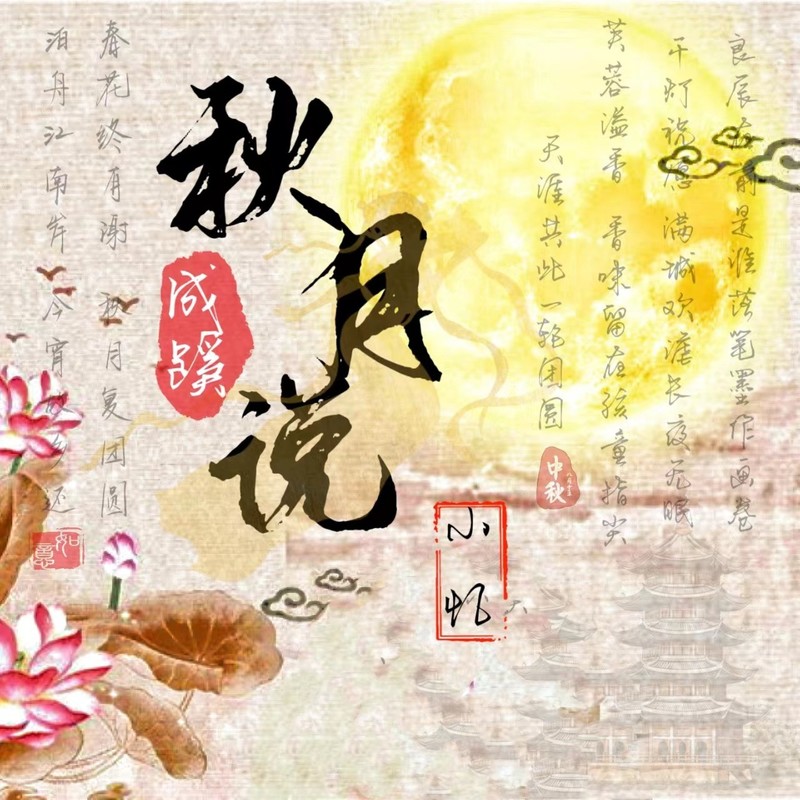 秋月说
成蹊
小
良辰 前是谁落笔墨作画卷
千灯祝愿 满城欢 长夜无眠
芙蓉溢香 香味留在孩童指尖
天涯共此一轮团圆
中秋
春花终有谢 秋月复团圆
泊舟江南岸 今宵故乡还
如意